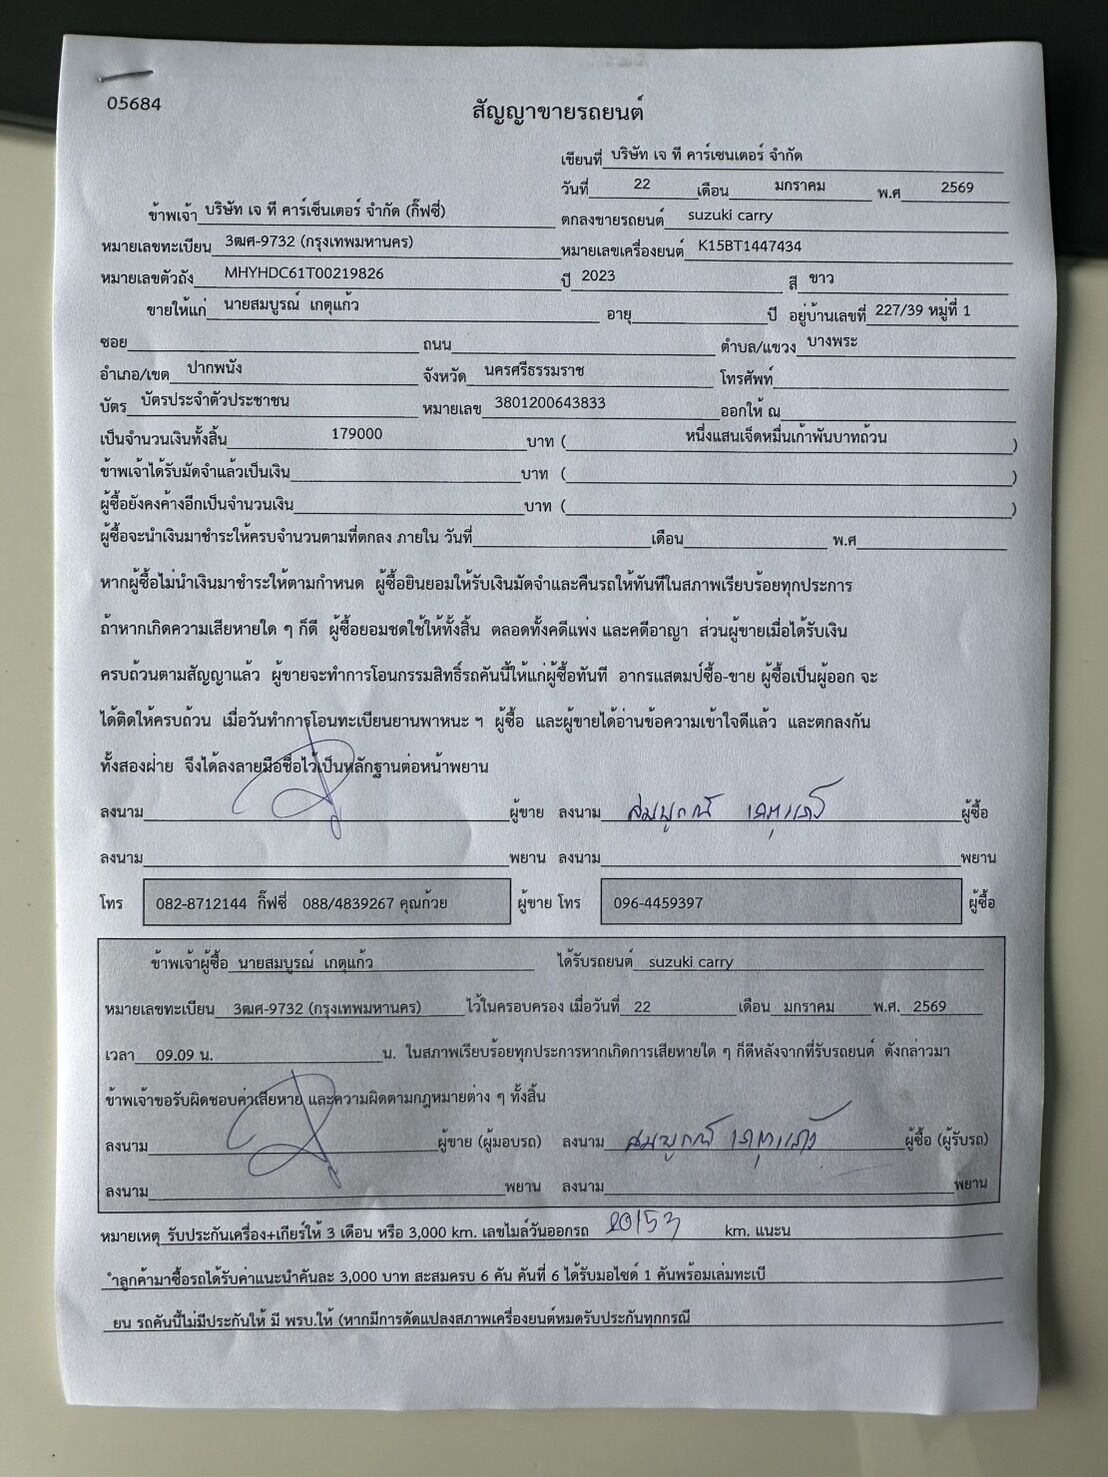 05684
สัญญาขายรถยนต์
เขียนที่ บริษัท เจ ที คาร์เซนเตอร์ จำกัด
วันที่ 22 เดือน มกราคม พ.ศ 2569
ข้าพเจ้า บริษัท เจ ที คาร์เซ็นเตอร์ จำกัด (กิ๊ฟซี่) ตกลงขายรถยนต์ suzuki carry
หมายเลขทะเบียน 3ฒศ-9732 (กรุงเทพมหานคร) หมายเลขเครื่องยนต์ K15BT1447434
หมายเลขตัวถัง MHYHDC61T00219826 ปี 2023 สี ขาว
ขายให้แก่ นายสมบูรณ์ เกตุแก้ว อายุ ปี อยู่บ้านเลขที่ 227/39 หมู่ที่ 1
ซอย ถนน ตำบล/แขวง บางพระ
อำเภอ/เขต ปากพนัง จังหวัด นครศรีธรรมราช โทรศัพท์
บัตร บัตรประจำตัวประชาชน หมายเลข 3801200643833 ออกให้ ณ
เป็นจำนวนเงินทั้งสิ้น 179000 บาท ( หนึ่งแสนเจ็ดหมื่นเก้าพันบาทถ้วน )
ข้าพเจ้าได้รับมัดจำแล้วเป็นเงิน บาท ( )
ผู้ซื้อยังคงค้างอีกเป็นจำนวนเงิน บาท ( )
ผู้ซื้อจะนำเงินมาชำระให้ครบจำนวนตามที่ตกลง ภายใน วันที่ เดือน พ.ศ
หากผู้ซื้อไม่นำเงินมาชำระให้ตามกำหนด ผู้ซื้อยินยอมให้รับเงินมัดจำและคืนรถให้ทันทีในสภาพเรียบร้อยทุกประการ
ถ้าหากเกิดความเสียหายใด ๆ ก็ดี ผู้ซื้อยอมชดใช้ให้ทั้งสิ้น ตลอดทั้งคดีแพ่ง และคดีอาญา ส่วนผู้ขายเมื่อได้รับเงิน
ครบถ้วนตามสัญญาแล้ว ผู้ขายจะทำการโอนกรรมสิทธิ์รถคันนี้ให้แก่ผู้ซื้อทันที อากรแสตมป์ซื้อ-ขาย ผู้ซื้อเป็นผู้ออก จะ
ได้ติดให้ครบถ้วน เมื่อวันทำการโอนทะเบียนยานพาหนะ ฯ ผู้ซื้อ และผู้ขายได้อ่านข้อความเข้าใจดีแล้ว และตกลงกัน
ทั้งสองฝ่าย จึงได้ลงลายมือชื่อไว้เป็นหลักฐานต่อหน้าพยาน
ลงนาม ผู้ขาย ลงนาม สมบูรณ์ เกตุแก้ว ผู้ซื้อ
ลงนาม พยาน ลงนาม พยาน
โทร 082-8712144 กิ๊ฟซี่ 088/4839267 คุณก้วย ผู้ขาย โทร 096-4459397 ผู้ซื้อ
ข้าพเจ้าผู้ซื้อ นายสมบูรณ์ เกตุแก้ว ได้รับรถยนต์ suzuki carry
หมายเลขทะเบียน 3ฒศ-9732 (กรุงเทพมหานคร) ไว้ในครอบครอง เมื่อวันที่ 22 เดือน มกราคม พ.ศ. 2569
เวลา 09.09 น. น. ในสภาพเรียบร้อยทุกประการหากเกิดการเสียหายใด ๆ ก็ดีหลังจากที่รับรถยนต์ ดังกล่าวมา
ข้าพเจ้าขอรับผิดชอบค่าเสียหาย และความผิดตามกฎหมายต่าง ๆ ทั้งสิ้น
ลงนาม ผู้ขาย (ผู้มอบรถ) ลงนาม สมบูรณ์ เกตุแก้ว ผู้ซื้อ (ผู้รับรถ)
ลงนาม พยาน ลงนาม พยาน
หมายเหตุ รับประกันเครื่อง+เกียร์ให้ 3 เดือน หรือ 3,000 km. เลขไมล์วันออกรถ 20153 km. แนะน
ำลูกค้ามาซื้อรถได้รับค่าแนะนำคันละ 3,000 บาท สะสมครบ 6 คัน คันที่ 6 ได้รับมอไซด์ 1 คันพร้อมเล่มทะเบี
ยน รถคันนี้ไม่มีประกันให้ มี พรบ.ให้ (หากมีการดัดแปลงสภาพเครื่องยนต์หมดรับประกันทุกกรณี